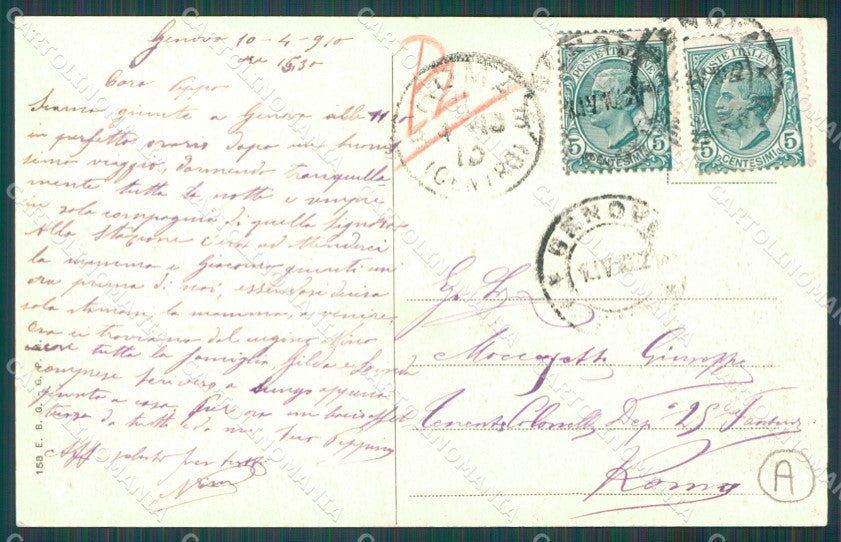 Genova 10-4-910
ore 15,30
Caro Peppo
Siamo giunte a Genova alle 11,10
in perfetto orario dopo un buonis
simo viaggio, dormendo tranquilla
mente tutta la notte e sempre
in sola compagnia di quella signora
Alla stazione c'era ad attenderci
la mamma e Giacomo giunti un
ora prima di noi, essendosi decisa
sola stamani, la mamma, a venire.
Ora ci troviamo dal cugino Nino
con tutta la famiglia, Gilda e
comprese. Scriverò a lungo appena
giunta a casa. Per ora un bacio affet
tuoso da tutti e da me, tuo Peppino
Aff. saluto per tutti
158 E. B. G. G. P. R.
ROMA
(CENTRO)
POSTE ITALIANE
5 CENTESIMI 5
POSTE ITALIANE
5 CENTESIMI 5
GENOVA
Giuseppe
Tenente Colonnello Dep. 25 Fanteria
Roma
A
CARTOLINOMANIA